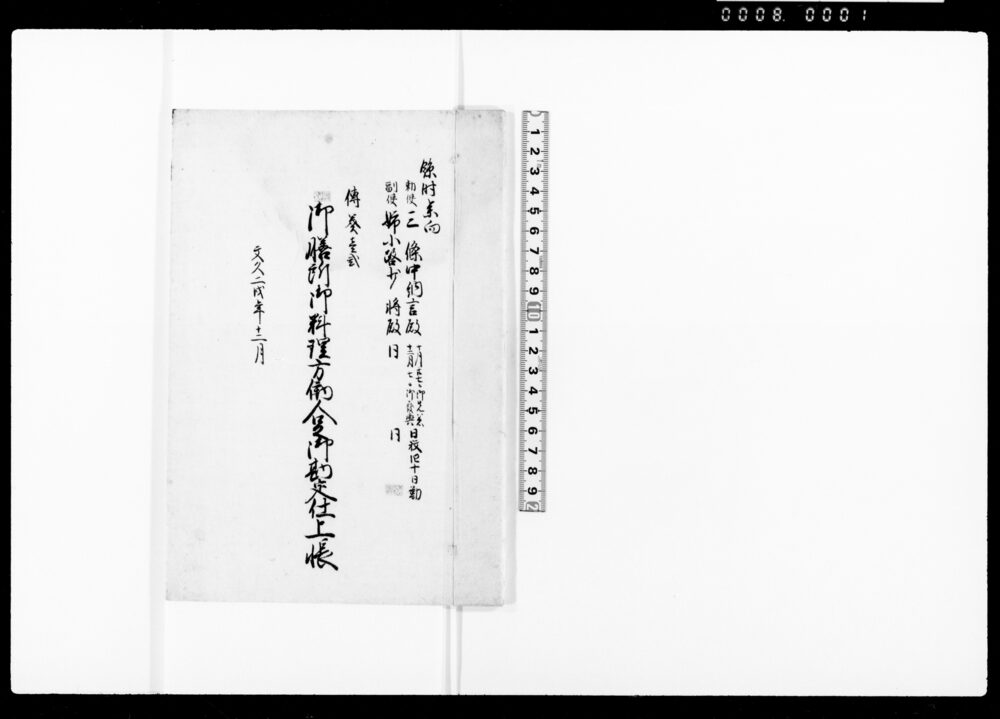 0008. 0001
臨時參向
勅使 三條中納言殿 十月廿七日御着 日数四十日勤
副使 姉小路少将殿 同 十二月七日御発輿 同
傳奏
御膳所御料理方働人足御勘定仕上帳
文久二戌年十二月
1 2 3 4 5 6 7 8 9 10 1 2 3 4 5 6 7 8 9 2